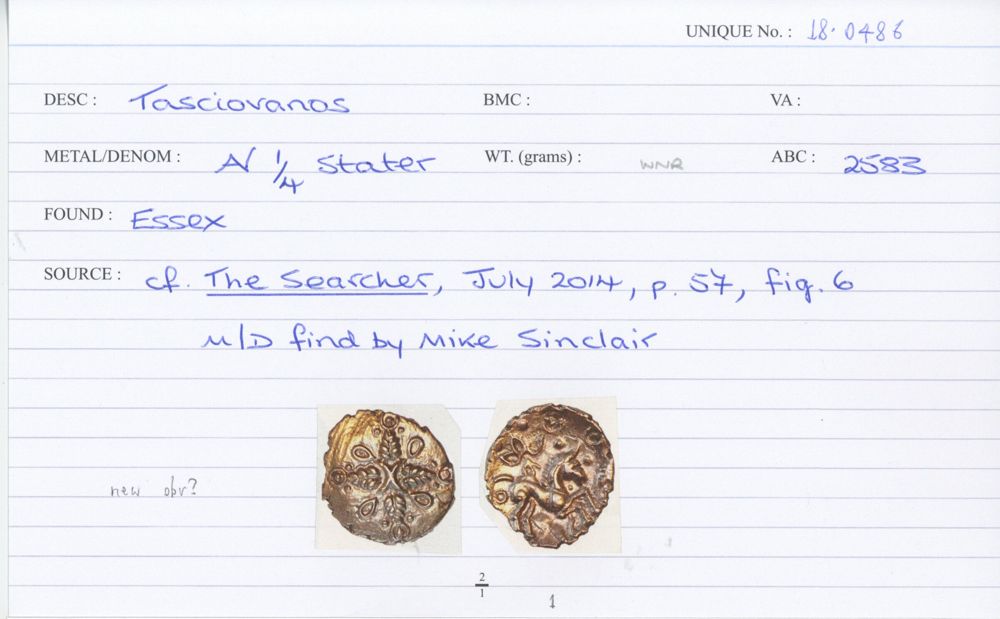 UNIQUE No. : 18.0486
DESC : Tasciovanos BMC : VA :
METAL/DENOM : A/ 1/4 Stater WT. (grams) : WNR ABC : 2583
FOUND : Essex
SOURCE : cf. The Searcher, July 2014, p. 57, fig. 6
M/D find by Mike Sinclair
new obv?
2/1
1